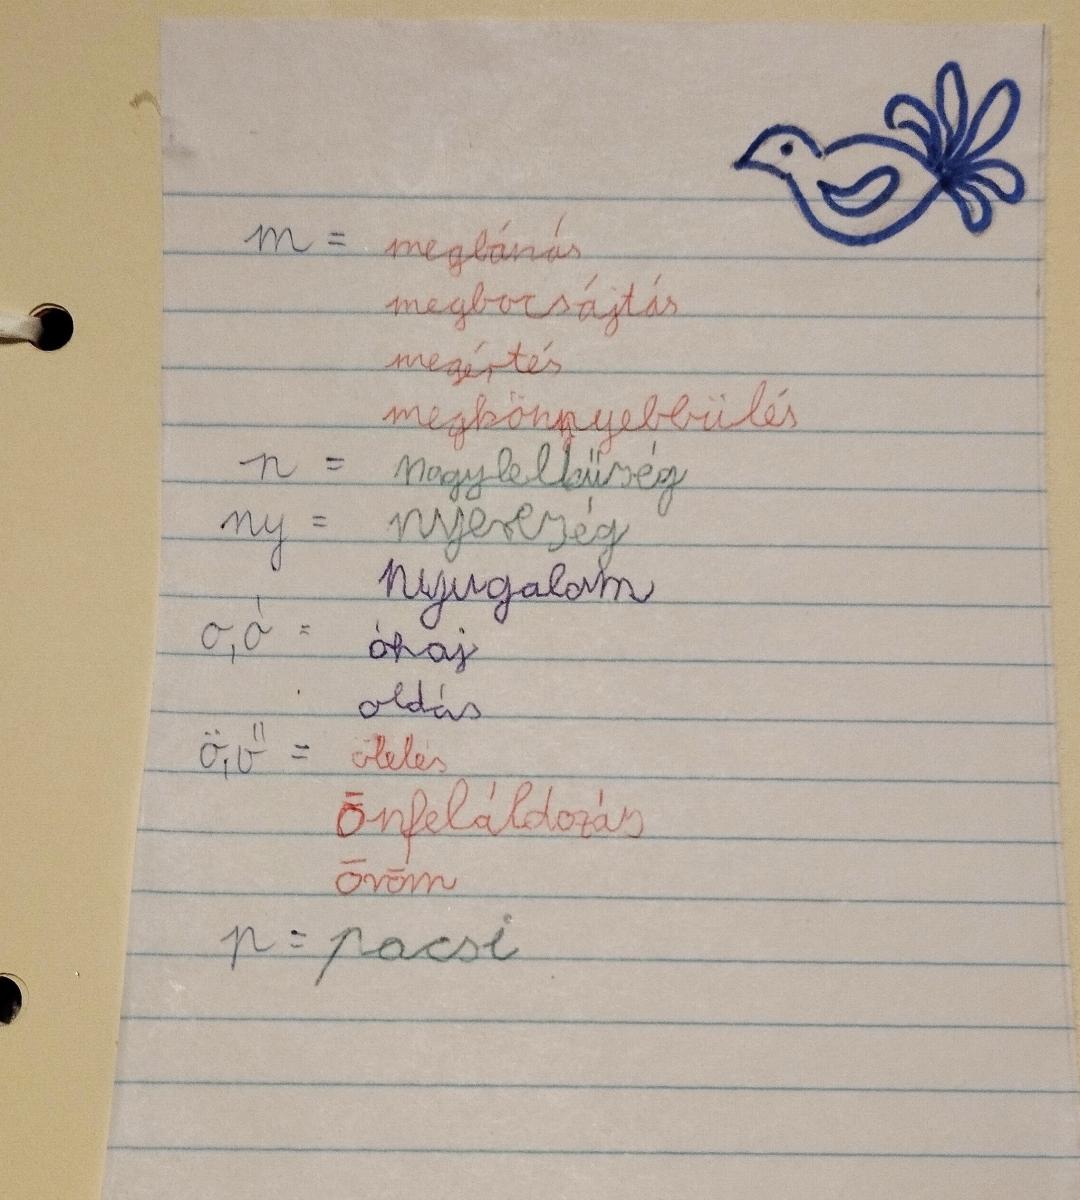 m = megbánás
megbocsájtás
megértés
megkönnyebbülés
n = nagylelkűség
ny = nyereség
nyugalom
o,ó = óhaj
oldás
ö,ő = ölelés
önfeláldozás
öröm
p = pacsi